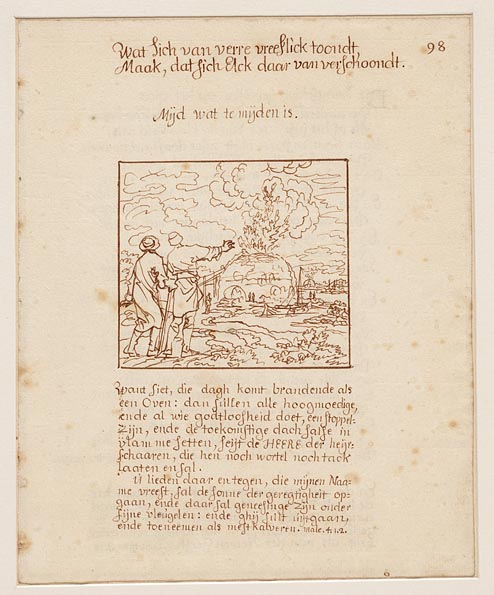 Wat sich van verre vreeslick toondt, 98
Maak, dat sich Elck daar van verschoondt.
Mijd wat te mijden is.
Want siet, die dagh komt brandende als
een Oven: dan sullen alle hoogmoedige,
ende al wie godtloosheid doet, een stoppel-
zijn, ende de toekomstige dach salse in
vlam me setten, seijt de HEERE der heijr-
schaaren, die hen noch wortel noch tack
laaten en sal.
U lieden daar en tegen, die mijnen Naa-
me vreest, sal de sonne der geregtigheit op-
gaan, ende daar sal genesinge zijn onder
sijne vleugelen: ende ghij sult uijtgaan,
ende toeneemen als mestkalveren. Male. 4:1.2.